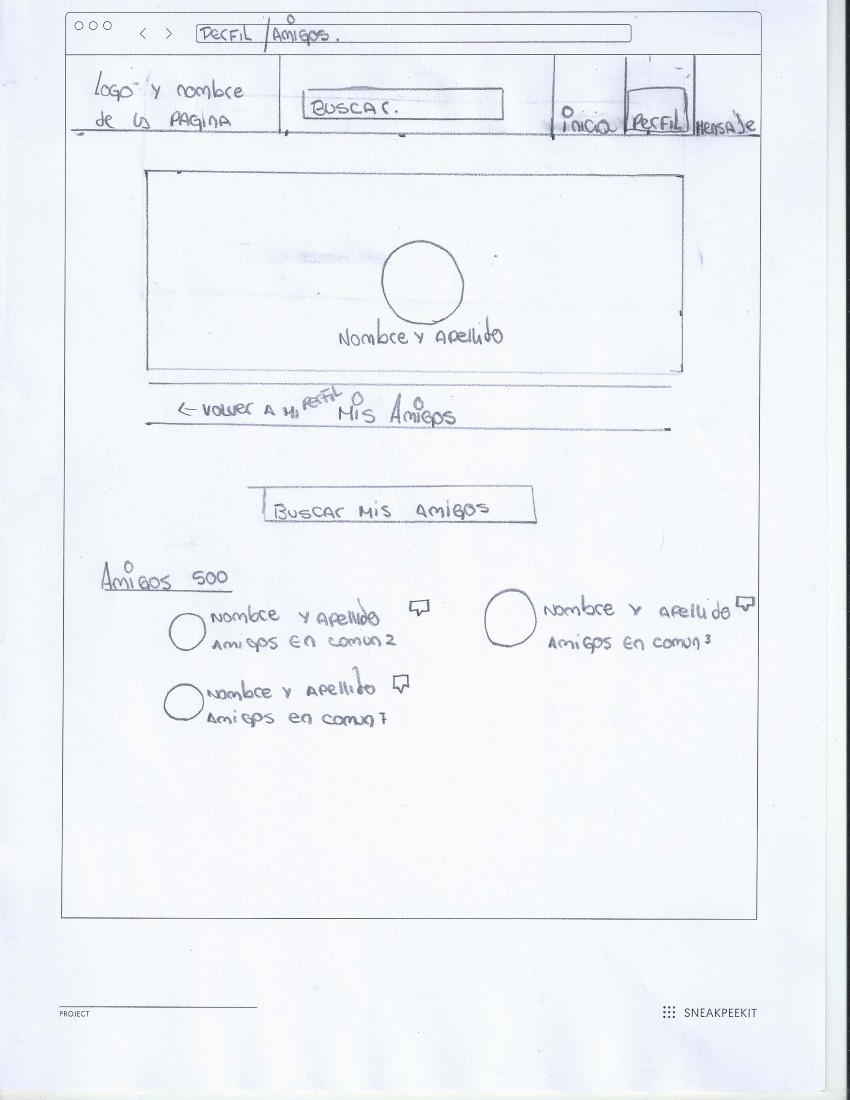 Perfil / Amigos.
Logo y nombre
de la PAGINA
BUSCAR.
inicio
Perfil
Mensaje
Nombre y Apellido
← Volver A Mi Perfil
Mis Amigos
Buscar Mis Amigos
Amigos 500
Nombre y Apellido
Amigos en comun 2
Nombre y Apellido
Amigos en comun 3
Nombre y Apellido
Amigos en comun 7
PROJECT
SNEAKPEEKIT